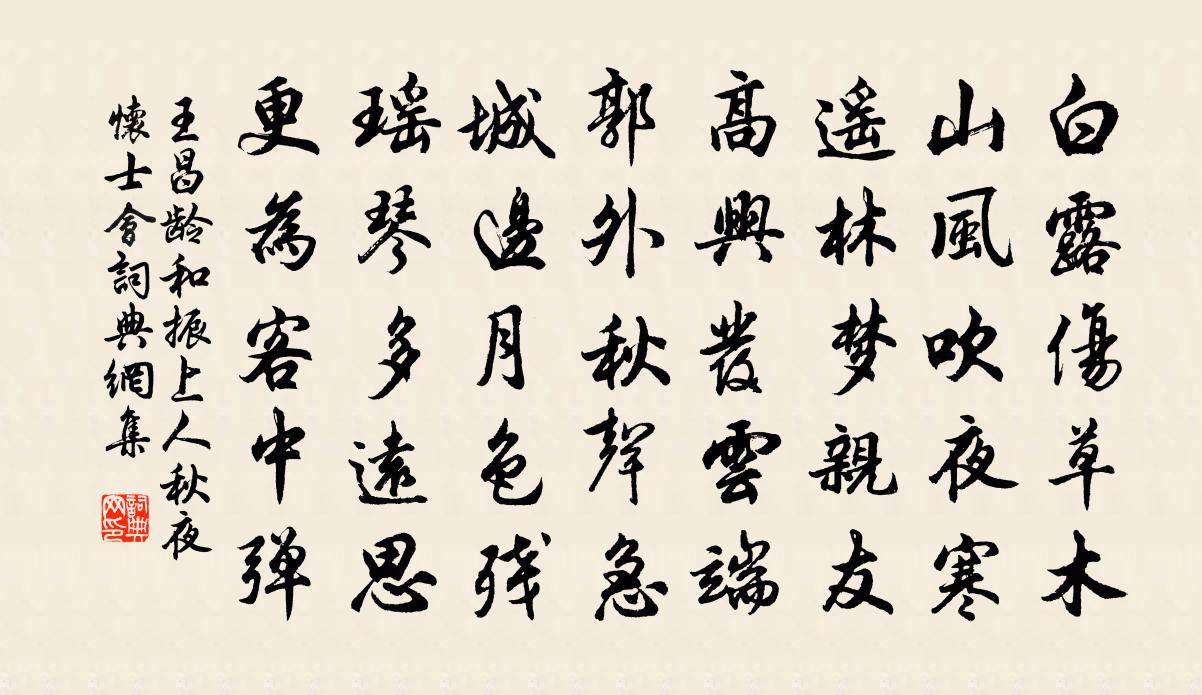 白露傷草木
山風吹夜寒
遥林梦親友
高興發雲端
郭外秋聲急
城邊月色殘
瑶琴多遠思
更為客中弹
王昌龄和振上人秋夜
懷士會詞典網集
詞典
网印